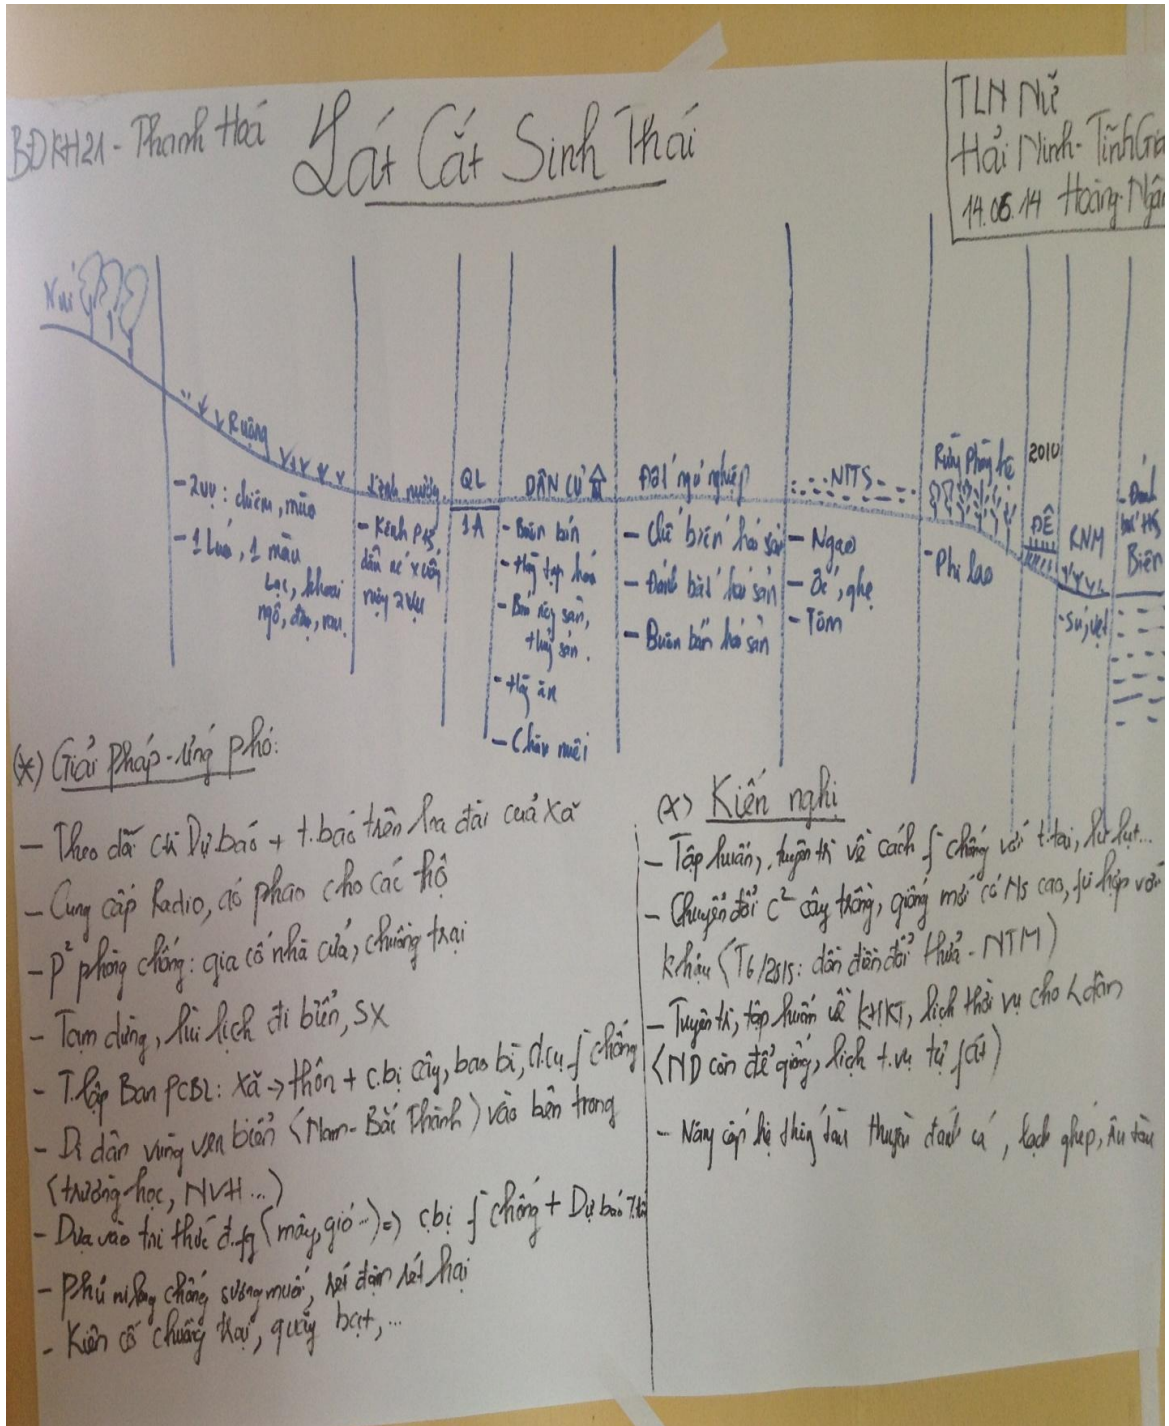 BĐKH21 - Thanh Hoá
Lát Cắt Sinh Thái
TLN Nữ
Hải Ninh - Tĩnh Gia
14.05.14 Hoàng Ngân
Núi
Ruộng
- 2 vụ: chiêm, mùa
- 1 Lúa, 1 màu
Lạc, khoai
ngô, đậu, rau.
Kênh mương
- Kênh
dẫn nc xuống
ruộng 2 vụ
QL
1A
DÂN CƯ
- Buôn bán
- Hàng tạp hoá
- Bán sản,
thuỷ sản.
- Hàng ăn
- Chăn nuôi
Đất ngư nghiệp
- Chế biến hải sản
- Đánh bắt hải sản
- Buôn bán hải sản
NTTS
- Ngao
- ghẹ
- Tôm
Rừng Phòng hộ
- Phi lao
2010
ĐÊ
RNM
- Sú, vẹt
- Đánh
bắt HS
Biển
(*) Giải pháp - ứng phó:
- Theo dõi Dự báo + t.báo trên loa đài của xã
- Cung cấp Radio, áo phao cho các hộ
- P² phòng chống: gia cố nhà cửa, chuồng trại
- Tạm dừng, lùi lịch đi biển, SX
- T.lập Ban PCBL: Xã → thôn + c.bị cây, bao bì, d.cụ f chống
- Di dân vùng ven biển (Nam - Bắc Thành) vào bên trong
(trường học, NVH ...)
- Dựa vào tri thức đ.fg (mây, gió ...) => c.bị f chống + Dự báo T.tiết
- Phủ nilong chống sương muối, rét đậm rét hại
- Kiên cố chuồng trại, quây bạt, ...
(*) Kiến nghị
- Tập huấn, tuyên tr về cách f chống với t.tai, lũ lụt...
- Chuyển đổi c² cây trồng, giống mới có NS cao, fù hợp với
k.hậu (T6/2015: dồn điền đổi thửa - NTM)
- Tuyên tr, tập huấn về KHKT, lịch thời vụ cho dân
(ND còn để giống, lịch t.vụ tự fát)
- Nâng cấp hệ thống tàu thuyền đánh cá, lạch ghép, âu tàu